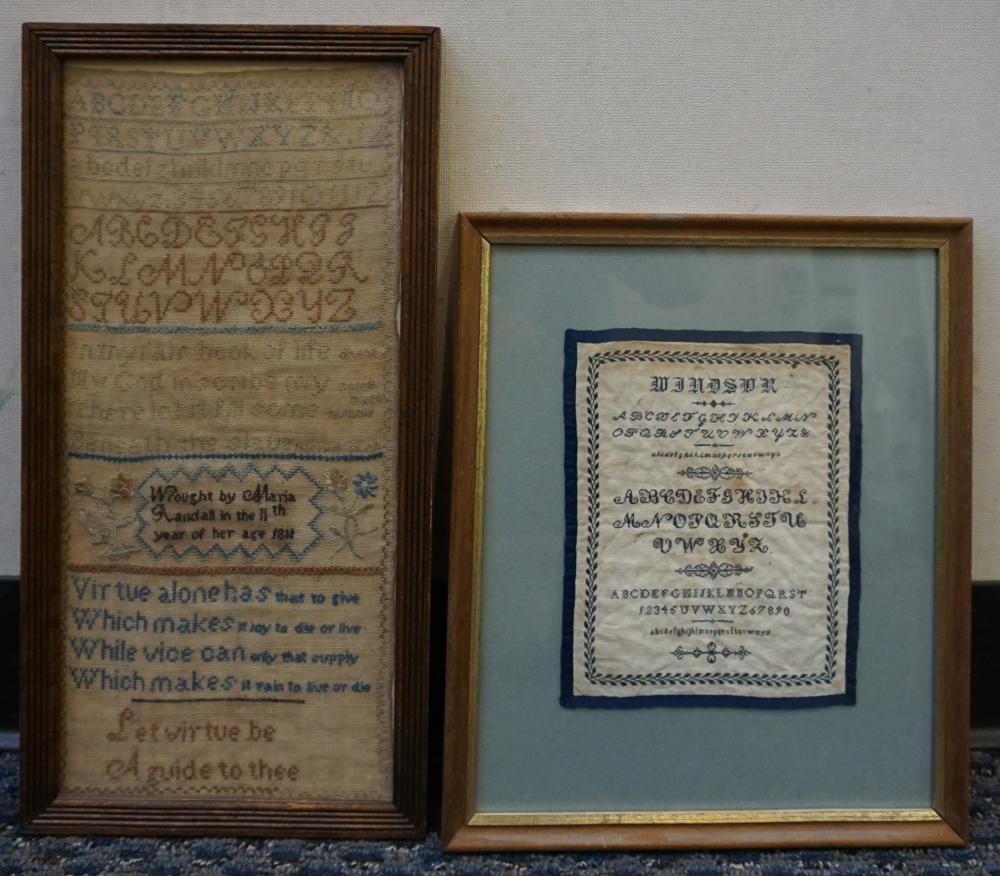 ABCDEFGHIJKLMNO
PQRSTUVWXYZ&
abcdefghiklmnopqrstu
ABCDEFGHIJ
KLMNOPQR
STUVWXYZ
fair book of life
My God
there
Wrought by Maria
Randall in the 11th
year of her age 1811
Virtue alone has that to give
Which makes it joy to die or live
While vice can only that supply
Which makes it pain to live or die
Let virtue be
A guide to thee
WINDSOR
ABCDEFGHIJKLMN
OPQRSTUVWXYZ&
abcdefghiklmnopqrstuvwxyz
ABCDEFGHIKL
MNOPQRSTU
VWXYZ
ABCDEFGHIJKLMNOPQRST
12345UVWXYZ67890
abcdefghijklmnopqrstuvwxyz